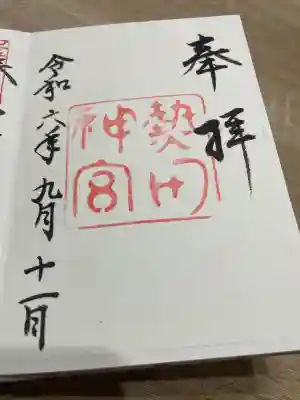 奉拝
熱田
神宮
令和六年九月十一日